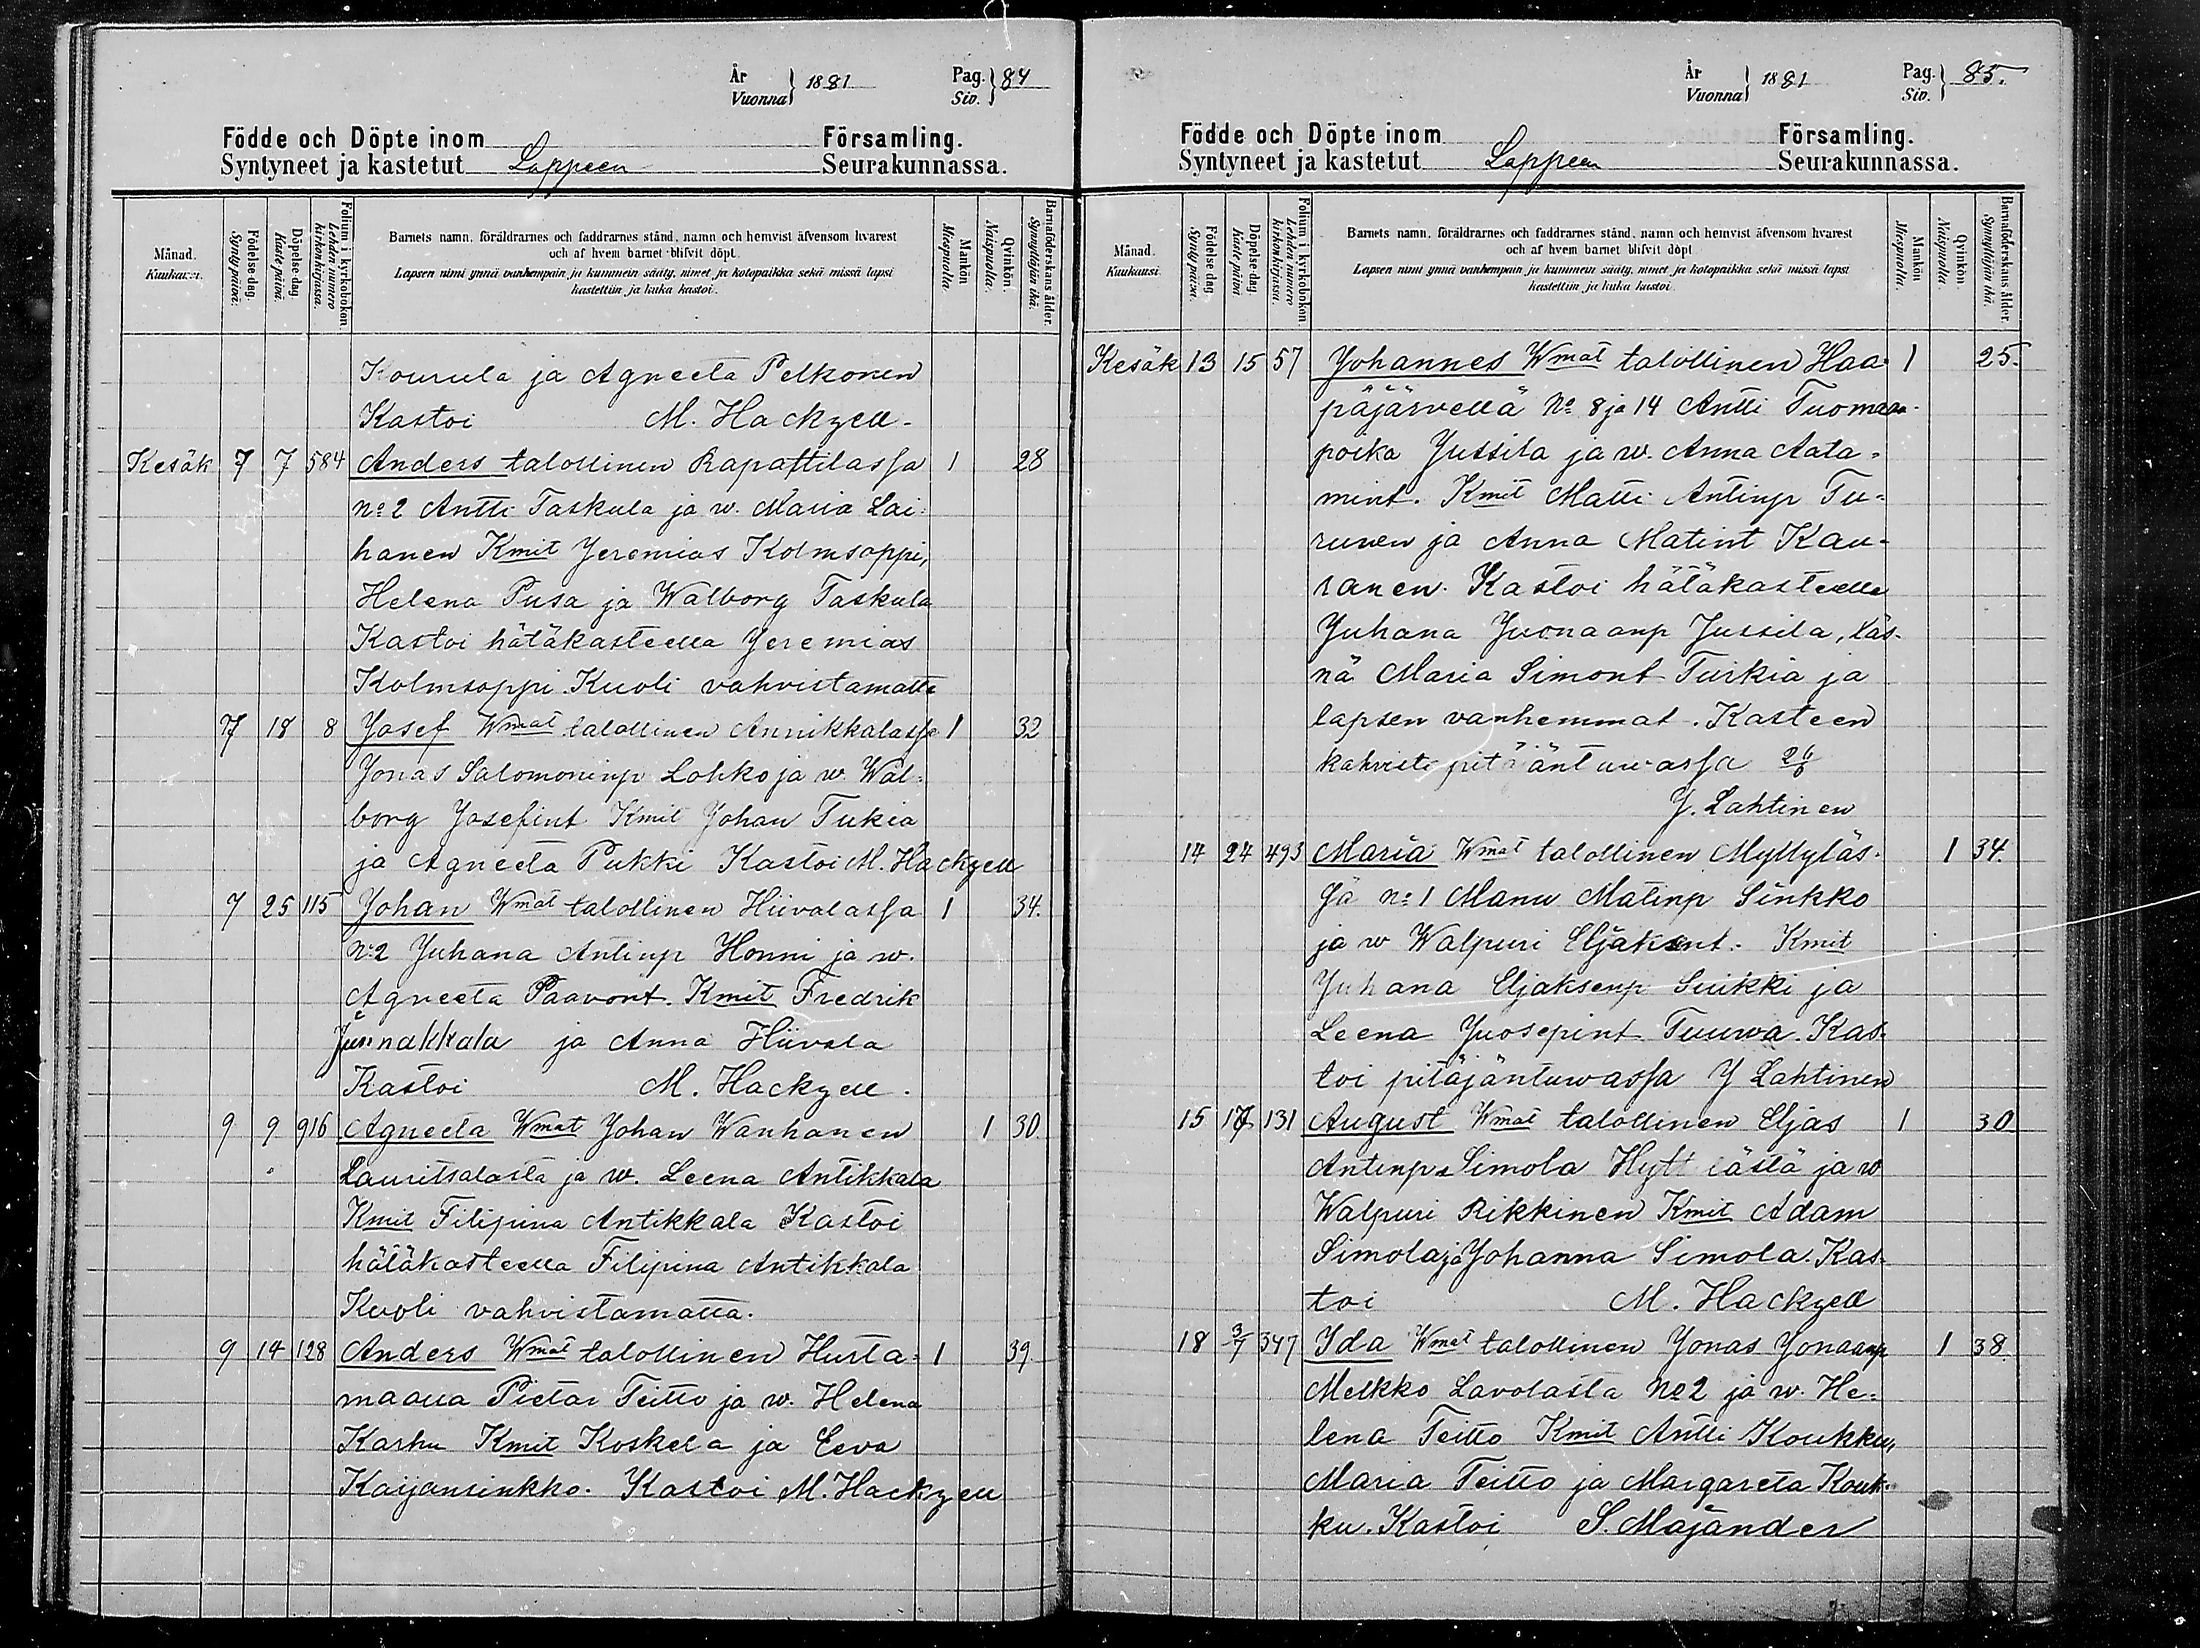 År
Vuonna } 1881
Pag.
Siv. } 84
Födde och Döpte inom Församling.
Syntyneet ja kastetut Lappeen Seurakunnassa.
Månad.
Kuukausi.
Födelse-dag.
Synty päivä.
Döpelse-dag.
Kaste päivä.
Folium i kyrkoboken.
Lehden numero
kirkonkirjassa.
Barnets namn, föräldrarnes och faddrarnes stånd, namn och hemvist äfvensom hvarest
och af hvem barnet blifvit döpt.
Lapsen nimi ynnä vanhempain ja kummein sääty, nimet ja kotopaikka sekä missä lapsi
kastettiin ja kuka kastoi.
Mankön
Miespuolia.
Qvinkön.
Naispuolia.
Barnaföderskans ålder.
Synnyttäjän ikä.
Kourula ja Agneeta Pelkonen
Kastoi M. Hackzell.
Kesäk 7 7 584 Anders talollinen Rapattilassa 1 28
No 2 Antti Taskula ja w. Maria Lai-
hanen Kmit Jeremias Kolmsoppi,
Helena Pusa ja Walborg Taskula
Kastoi hätäkasteella Jeremias
Kolmsoppi. Kuoli vahvistamatta
7 18 8 Josef Wmat talollinen Annikkalassa 1 32
Jonas Salomoninp Lohko ja w. Wal-
borg Josefint Kmit Johan Tukia
ja Agneeta Pukki Kastoi M. Hackzell
7 25 115 Johan Wmat talollinen Hiivalassa 1 34.
No 2 Juhana Antinp Honni ja w.
Agneeta Paavont. Kmit Fredrik
Junnakkala ja Anna Hiivala
Kastoi M. Hackzell.
9 9 916 Agneeta Wmat Johan Wanhanen 1 30.
Lauritsalasta ja w. Leena Antikkala
Kmit Filipina Antikkala Kastoi
hätäkasteella Filipina Antikkala
Kuoli vahvistamatta.
9 14 128 Anders Wmat talollinen Hurta- 1 39
maalla Pietar Teitto ja w. Helena
Karhu Kmit Koskela ja Eeva
Karjansinkko. Kastoi M. Hackzell
År
Vuonna } 1881
Pag.
Siv. } 85.
Födde och Döpte inom Församling.
Syntyneet ja kastetut Lappeen Seurakunnassa.
Månad.
Kuukausi.
Födelse dag.
Synty päivä.
Döpelse-dag.
Kaste päivä.
Folium i kyrkoboken.
Lehden numero
kirkonkirjassa.
Barnets namn, föräldrarnes och faddrarnes stånd, namn och hemvist äfvensom hvarest
och af hvem barnet blifvit döpt.
Lapsen nimi ynnä vanhempain ja kummein sääty, nimet ja kotopaikka sekä missä lapsi
kastettiin ja kuka kastoi.
Mankön
Miespuolia.
Qvinkön.
Naispuolia.
Barnaföderskans ålder.
Synnyttäjän ikä.
Kesäk 13 15 57 Johannes Wmat talollinen Haa- 1 25.
päjärvellä No 8 ja 14 Antti Tuomaan-
poika Jussila ja w. Anna Aata-
mint. Kmit Matti Antinp Tu-
runen ja Anna Matint Kau-
ranen. Kastoi hätäkasteella
Juhana Juonaanp Jussila, läs-
nä Maria Simont Turkia ja
lapsen vanhemmat. Kasteen
kahvisti pitäjäntuvassa 26/6
J. Lahtinen
14 24 493 Maria Wmat talollinen Myllyläs- 1 34.
sä No 1 Manu Matinp Sinkko
ja w Walpuri Eljaksent. Kmit
Juhana Eljaksenp Suikki ja
Leena Juosepint Tuuwa. Kas-
toi pitäjäntuwassa J Lahtinen
15 17 131 August Wmat talollinen Eljas 1 30
Antinp Simola Hyttilästä ja w
Walpuri Rikkinen Kmit Adam
Simola ja Johanna Simola. Kas-
toi M. Hackzell
18 3/7 347 Ida Wmat talollinen Jonas Jonaanp 1 38.
Melkko Lavolasta No 2 ja w. He-
lena Teitto Kmit Antti Koukku,
Maria Teitto ja Margareta Kouk-
ku. Kastoi S. Majander